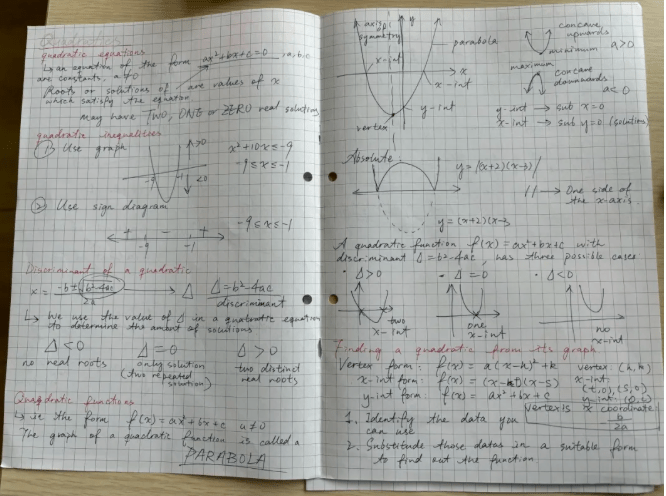 Quadratics
quadratic equations
↳ an equation of the form ax²+bx+c=0, a,b,c
are constants, a≠0
Roots or solutions of are values of x
which satisfy the equation
may have TWO, ONE or ZERO real solutions
quadratic inequalities
① Use graph
>0
<0
-9
x²+10x≤-9
-9≤x≤-1
② Use sign diagram
+ - +
-9 -1
-9≤x≤-1
Discriminant of a quadratic
x= -b±√b²-4ac
2a
→ Δ Δ=b²-4ac
discriminant
↳ We use the value of Δ in a quadratic equation
to determine the amount of solutions
Δ<0 Δ=0 Δ>0
no real roots only solution two distinct
(two repeated real roots
solution)
Quadratic functions
↳ in the form f(x)=ax²+bx+c a≠0
The graph of a quadratic function is called a
PARABOLA
axis of
symmetry
y
parabola
x-int
x
x-int
y-int
vertex
concave
upwards
minimum a>0
maximum
concave
downwards
a<0
y-int → sub x=0
x-int → sub y=0 (solutions)
Absolute:
y=|(x+2)(x-3)|
|| → One side of
the x-axis
y=(x+2)(x-3
A quadratic function f(x)=ax²+bx+c with
discriminant Δ=b²-4ac, has three possible cases
• Δ>0 • Δ=0 • Δ<0
two
x-int
one
x-int
no
x-int
Finding a quadratic from its graph
Vertex form: f(x)=a(x-h)²+k vertex: (h,k)
x-int form: f(x)= (x-t)(x-s) x-int:
(t,0),(s,0)
y-int form f(x)= ax²+bx+c y-int: (0,c)
vertex is x coordinate
b
2a
1. Identify the data you
can use
2. Substitude those datas in a suitable form
to find out the function